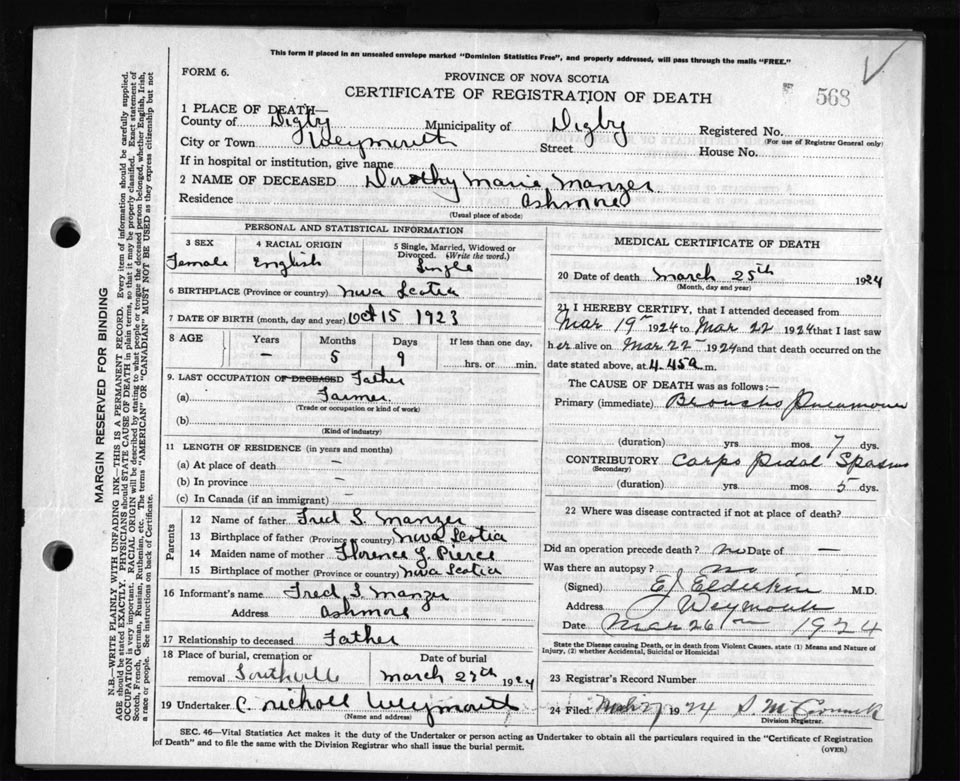 This form if placed in an unsealed envelope marked "Dominion Statistics Free", and properly addressed, will pass through the mails "FREE."
FORM 6.
PROVINCE OF NOVA SCOTIA
CERTIFICATE OF REGISTRATION OF DEATH
568
1 PLACE OF DEATH—
County of Digby Municipality of Digby Registered No.
(For use of Registrar General only)
City or Town Weymouth Street House No.
If in hospital or institution, give name
2 NAME OF DECEASED Dorothy Marie Manzer
Residence Ashmore
(Usual place of abode)
PERSONAL AND STATISTICAL INFORMATION
3 SEX 4 RACIAL ORIGIN 5 Single, Married, Widowed or Divorced. (Write the word.)
Female English Single
6 BIRTHPLACE (Province or country) Nva Scotia
7 DATE OF BIRTH (month, day and year) Oct 15 1923
8 AGE Years Months Days If less than one day,
– 5 9 hrs. or min.
9. LAST OCCUPATION OF DECEASED Father
(a) Farmer
(Trade or occupation or kind of work)
(b)
(Kind of industry)
11 LENGTH OF RESIDENCE (in years and months)
(a) At place of death –
(b) In province –
(c) In Canada (if an immigrant) –
Parents
12 Name of father Fred S. Manzer
13 Birthplace of father (Province or country) Nva Scotia
14 Maiden name of mother Florence J. Pierce
15 Birthplace of mother (Province or country) Nva Scotia
16 Informant's name Fred S Manzer
Address Ashmore
17 Relationship to deceased Father
18 Place of burial, cremation or removal Southville Date of burial March 27th 1924
19 Undertaker C. Nicholl Weymouth
(Name and address)
MEDICAL CERTIFICATE OF DEATH
20 Date of death March 25th 1924
(Month, day and year)
21 I HEREBY CERTIFY, that I attended deceased from
Mar 19th 1924 to Mar 22 1924 that I last saw
her alive on Mar 22 1924 and that death occurred on
date stated above, at 4.45a m.
The CAUSE OF DEATH was as follows:—
Primary (immediate) Broncho Pneumonia
(duration) yrs. mos. 7 dys.
CONTRIBUTORY Carpo Pedal Spasms
(Secondary)
(duration) yrs. mos. 5 dys.
22 Where was disease contracted if not at place of death?
Did an operation precede death? no Date of –
Was there an autopsy? no
(Signed) EJ Elderkin M.D.
Address Weymouth
Date Mar 26th 1924
State the Disease causing Death, or in death from Violent Causes, state (1) Means and Nature of Injury, (2) whether Accidental, Suicidal or Homicidal
23 Registrar's Record Number
24 Filed 1924 S. McCormick
Division Registrar.
SEC. 46—Vital Statistics Act makes it the duty of the Undertaker or person acting as Undertaker to obtain all the particulars required in the "Certificate of Registration
of Death" and to file the same with the Division Registrar who shall issue the burial permit.
(OVER)
MARGIN RESERVED FOR BINDING
N.B.—WRITE PLAINLY WITH UNFADING INK—THIS IS A PERMANENT RECORD. Every item of information should be carefully supplied.
AGE should be stated EXACTLY. PHYSICIANS should STATE CAUSE OF DEATH in plain terms, so that it may be properly classified. Exact statement of
OCCUPATION is very important. RACIAL ORIGIN will be described by stating to what people or tongue the deceased person belonged, whether English, Irish,
Scotch, French, German, Russian, Ruthenian, etc. The terms "AMERICAN" OR "CANADIAN" MUST NOT BE USED as they express citizenship but not
a race or people. See instructions on back of Certificate.